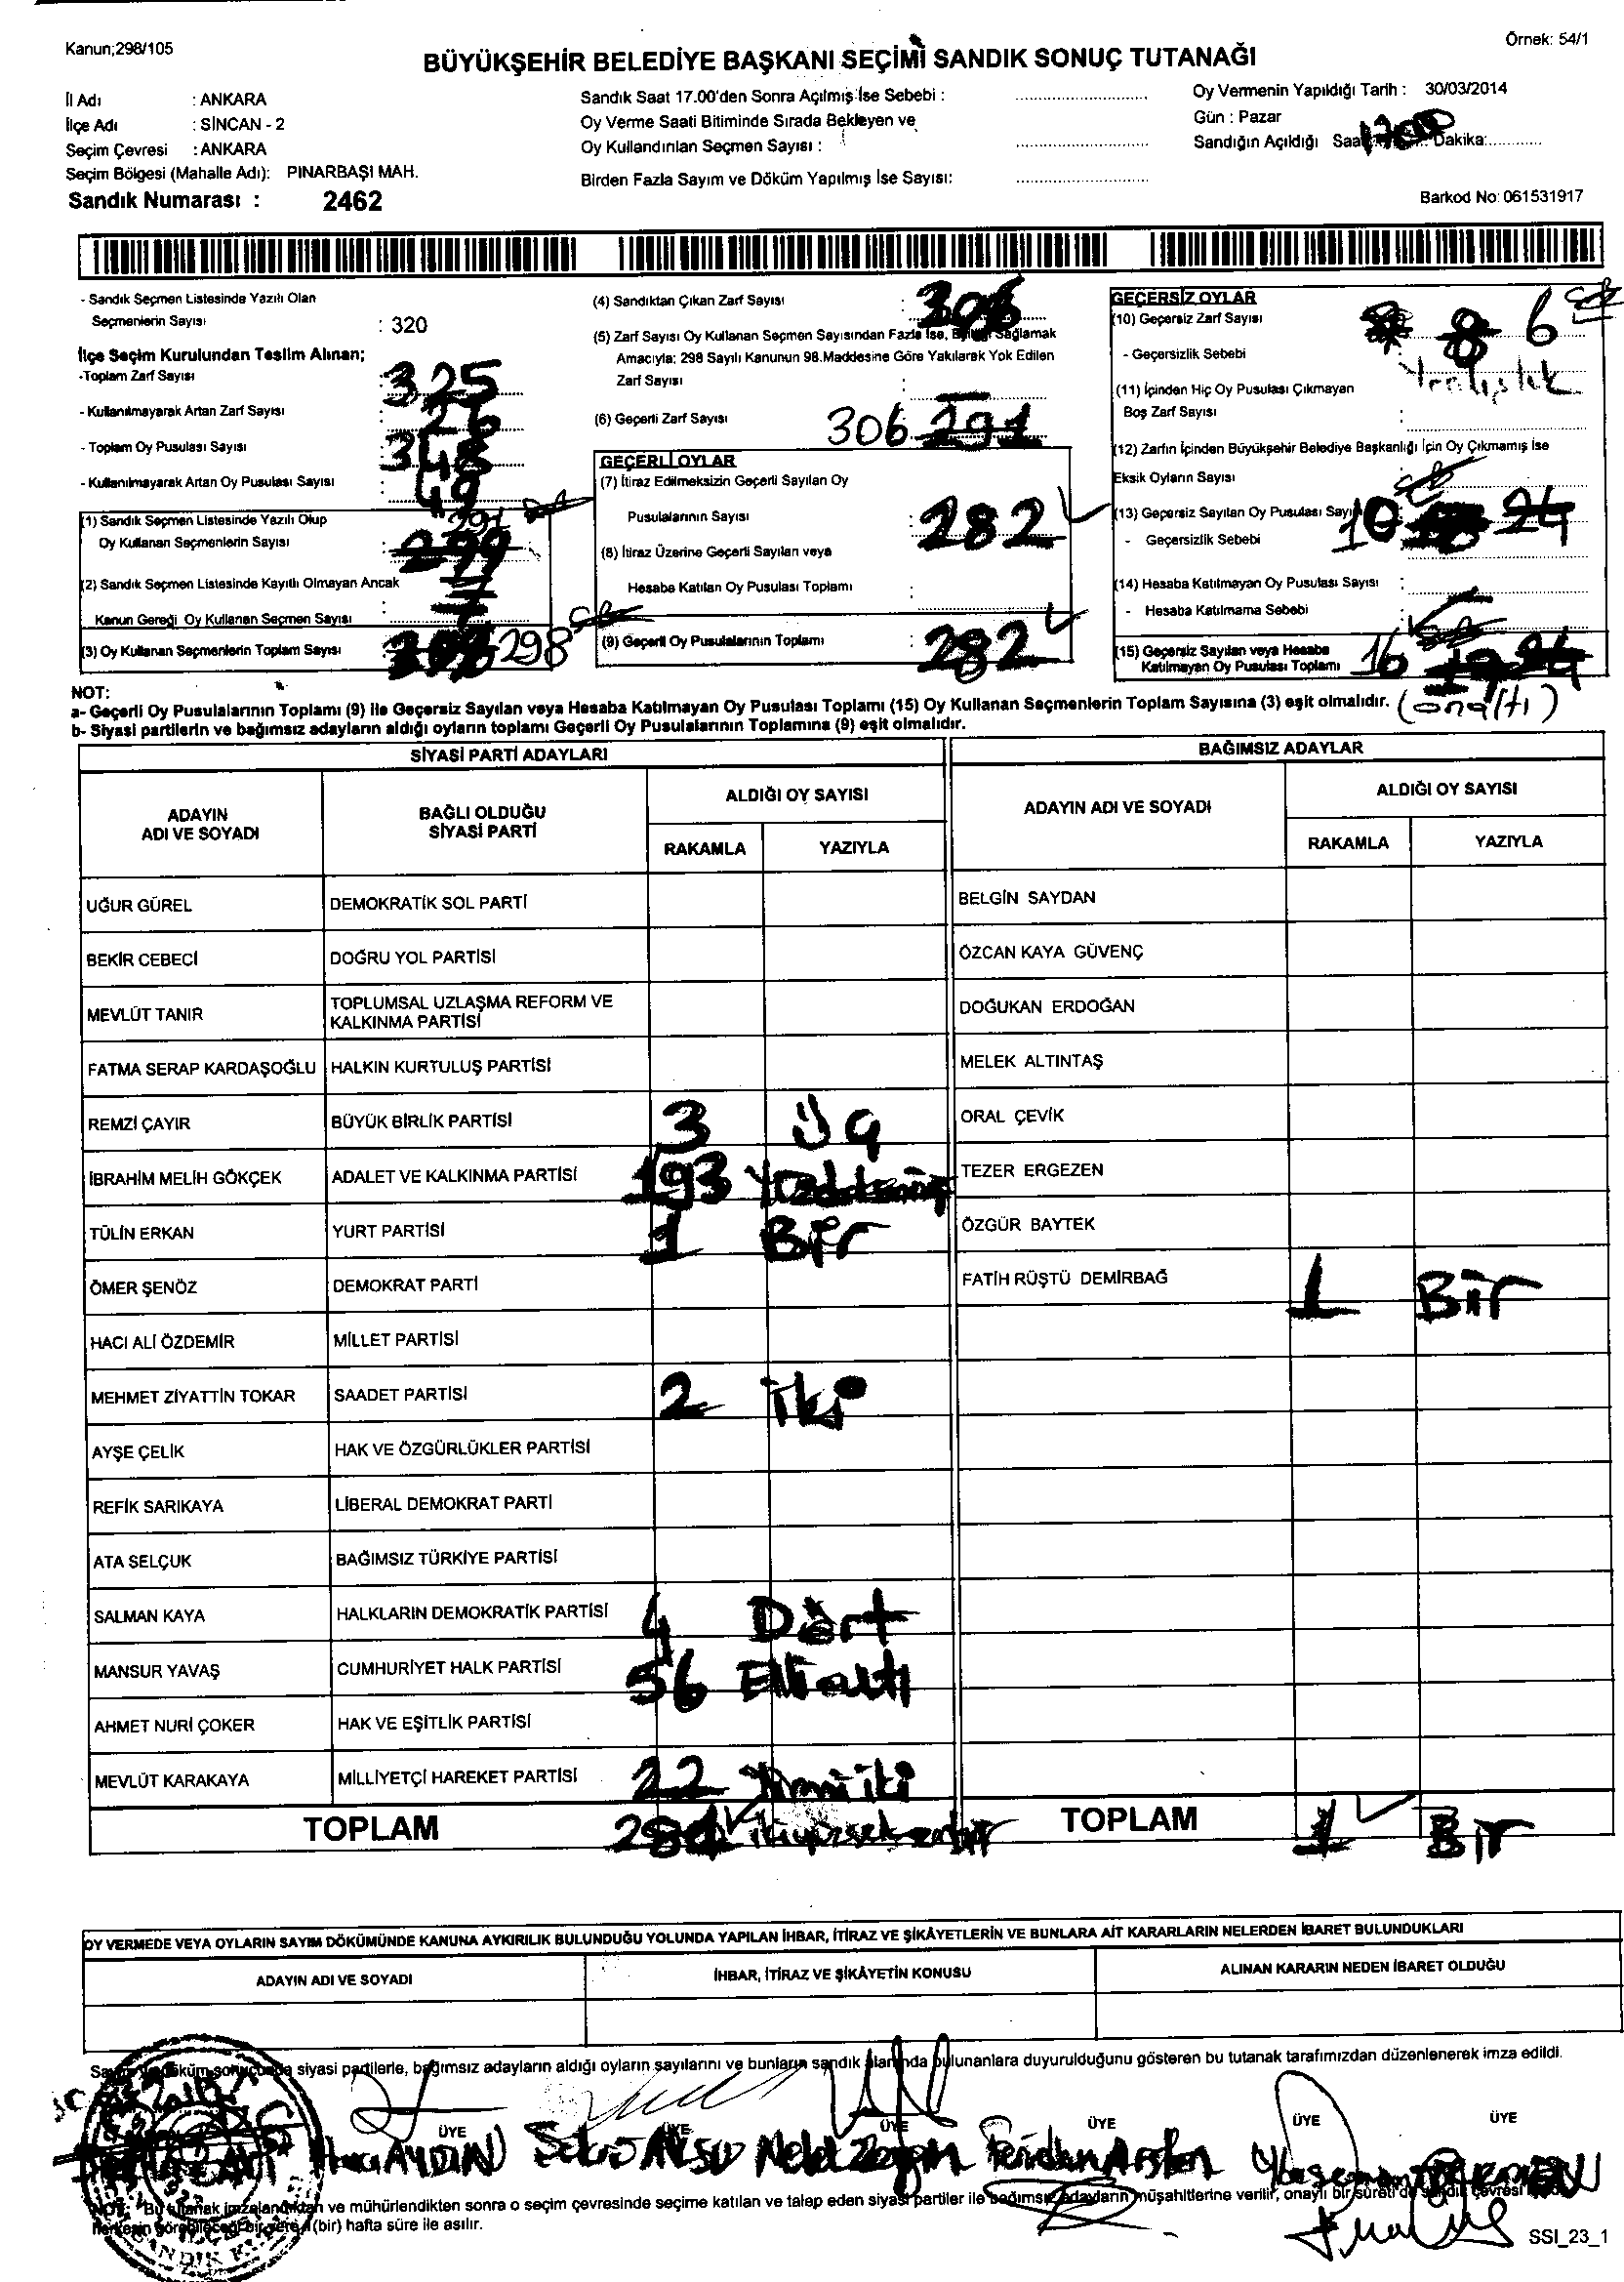 Kanun;298/105
Örnek: 54/1
BÜYÜKŞEHİR BELEDİYE BAŞKANI SEÇİMİ SANDIK SONUÇ TUTANAĞI
İl Adı : ANKARA
İlçe Adı : SİNCAN - 2
Seçim Çevresi : ANKARA
Seçim Bölgesi (Mahalle Adı): PINARBAŞI MAH.
Sandık Numarası : 2462
Sandık Saat 17.00'den Sonra Açılmış İse Sebebi :
Oy Verme Saati Bitiminde Sırada Bekleyen ve
Oy Kullandırılan Seçmen Sayısı :
Birden Fazla Sayım ve Döküm Yapılmış İse Sayısı:
Oy Vermenin Yapıldığı Tarih : 30/03/2014
Gün : Pazar
Sandığın Açıldığı Saat Dakika:
Barkod No: 061531917
- Sandık Seçmen Listesinde Yazılı Olan
Seçmenlerin Sayısı : 320
İlçe Seçim Kurulundan Teslim Alınan;
-Toplam Zarf Sayısı : 325
- Kullanılmayarak Artan Zarf Sayısı : 26
- Toplam Oy Pusulası Sayısı : 348
- Kullanılmayarak Artan Oy Pusulası Sayısı : 49
(1) Sandık Seçmen Listesinde Yazılı Olup 291
Oy Kullanan Seçmenlerin Sayısı
(2) Sandık Seçmen Listesinde Kayıtlı Olmayan Ancak
Kanun Gereği Oy Kullanan Seçmen Sayısı : 7
(3) Oy Kullanan Seçmenlerin Toplam Sayısı : 298
(4) Sandıktan Çıkan Zarf Sayısı : 306
(5) Zarf Sayısı Oy Kullanan Seçmen Sayısından Fazla İse, Sağlamak
Amacıyla; 298 Sayılı Kanunun 98.Maddesine Göre Yakılarak Yok Edilen
Zarf Sayısı :
(6) Geçerli Zarf Sayısı 306 291
GEÇERLİ OYLAR
(7) İtiraz Edilmeksizin Geçerli Sayılan Oy
Pusulalarının Sayısı : 282
(8) İtiraz Üzerine Geçerli Sayılan veya
Hesaba Katılan Oy Pusulası Toplamı :
(9) Geçerli Oy Pusulalarının Toplamı : 282
GEÇERSİZ OYLAR
(10) Geçersiz Zarf Sayısı 8 6
- Geçersizlik Sebebi
(11) İçinden Hiç Oy Pusulası Çıkmayan
Boş Zarf Sayısı :
(12) Zarfın İçinden Büyükşehir Belediye Başkanlığı İçin Oy Çıkmamış İse
Eksik Oyların Sayısı :
(13) Geçersiz Sayılan Oy Pusulası Sayısı 10 24
- Geçersizlik Sebebi
(14) Hesaba Katılmayan Oy Pusulası Sayısı :
- Hesaba Katılmama Sebebi :
(15) Geçersiz Sayılan veya Hesaba
Katılmayan Oy Pusulası Toplamı 16 24
(onaltı)
NOT:
a- Geçerli Oy Pusulalarının Toplamı (9) ile Geçersiz Sayılan veya Hesaba Katılmayan Oy Pusulası Toplamı (15) Oy Kullanan Seçmenlerin Toplam Sayısına (3) eşit olmalıdır.
b- Siyasi partilerin ve bağımsız adayların aldığı oyların toplamı Geçerli Oy Pusulalarının Toplamına (9) eşit olmalıdır.
SİYASİ PARTİ ADAYLARI
ADAYIN ADI VE SOYADI
BAĞLI OLDUĞU SİYASİ PARTİ
ALDIĞI OY SAYISI
RAKAMLA YAZIYLA
UĞUR GÜREL DEMOKRATİK SOL PARTİ
BEKİR CEBECİ DOĞRU YOL PARTİSİ
MEVLÜT TANIR TOPLUMSAL UZLAŞMA REFORM VE
KALKINMA PARTİSİ
FATMA SERAP KARDAŞOĞLU HALKIN KURTULUŞ PARTİSİ
REMZİ ÇAYIR BÜYÜK BİRLİK PARTİSİ 3 Üç
İBRAHİM MELİH GÖKÇEK ADALET VE KALKINMA PARTİSİ 193
TÜLİN ERKAN YURT PARTİSİ 1 Bir
ÖMER ŞENÖZ DEMOKRAT PARTİ
HACI ALİ ÖZDEMİR MİLLET PARTİSİ
MEHMET ZİYATTİN TOKAR SAADET PARTİSİ 2 iki
AYŞE ÇELİK HAK VE ÖZGÜRLÜKLER PARTİSİ
REFİK SARIKAYA LİBERAL DEMOKRAT PARTİ
ATA SELÇUK BAĞIMSIZ TÜRKİYE PARTİSİ
SALMAN KAYA HALKLARIN DEMOKRATİK PARTİSİ 4 Dört
MANSUR YAVAŞ CUMHURİYET HALK PARTİSİ 56 Ellialtı
AHMET NURİ ÇOKER HAK VE EŞİTLİK PARTİSİ
MEVLÜT KARAKAYA MİLLİYETÇİ HAREKET PARTİSİ 22 Yirmi iki
TOPLAM 281 ikiyüzseksenbir
BAĞIMSIZ ADAYLAR
ADAYIN ADI VE SOYADI
ALDIĞI OY SAYISI
RAKAMLA YAZIYLA
BELGİN SAYDAN
ÖZCAN KAYA GÜVENÇ
DOĞUKAN ERDOĞAN
MELEK ALTINTAŞ
ORAL ÇEVİK
TEZER ERGEZEN
ÖZGÜR BAYTEK
FATİH RÜŞTÜ DEMİRBAĞ 1 Bir
TOPLAM 1 Bir
OY VERMEDE VEYA OYLARIN SAYIM DÖKÜMÜNDE KANUNA AYKIRILIK BULUNDUĞU YOLUNDA YAPILAN İHBAR, İTİRAZ VE ŞİKÂYETLERİN VE BUNLARA AİT KARARLARIN NELERDEN İBARET BULUNDUKLARI
ADAYIN ADI VE SOYADI İHBAR, İTİRAZ VE ŞİKÂYETİN KONUSU ALINAN KARARIN NEDEN İBARET OLDUĞU
siyasi partilerle, bağımsız adayların aldığı oyların sayılarını ve bunların sandık alanında bulunanlara duyurulduğunu gösteren bu tutanak tarafımızdan düzenlenerek imza edildi.
ÜYE ÜYE ÜYE ÜYE ÜYE ÜYE
AYDIN
NOT: Bu tutanak imzalandıktan ve mühürlendikten sonra o seçim çevresinde seçime katılan ve talep eden siyasi partiler ile bağımsız adayların müşahitlerine verilir, onaylı bir sureti de sandık çevresi
herkesin görebileceği bir yere 1(bir) hafta süre ile asılır.
SSI_23_1